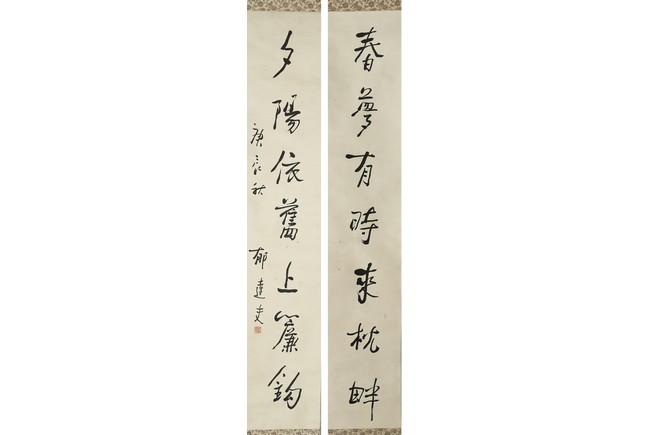 春夢有時來枕畔
夕陽依舊上簾鈎
庚辰秋 郁達夫